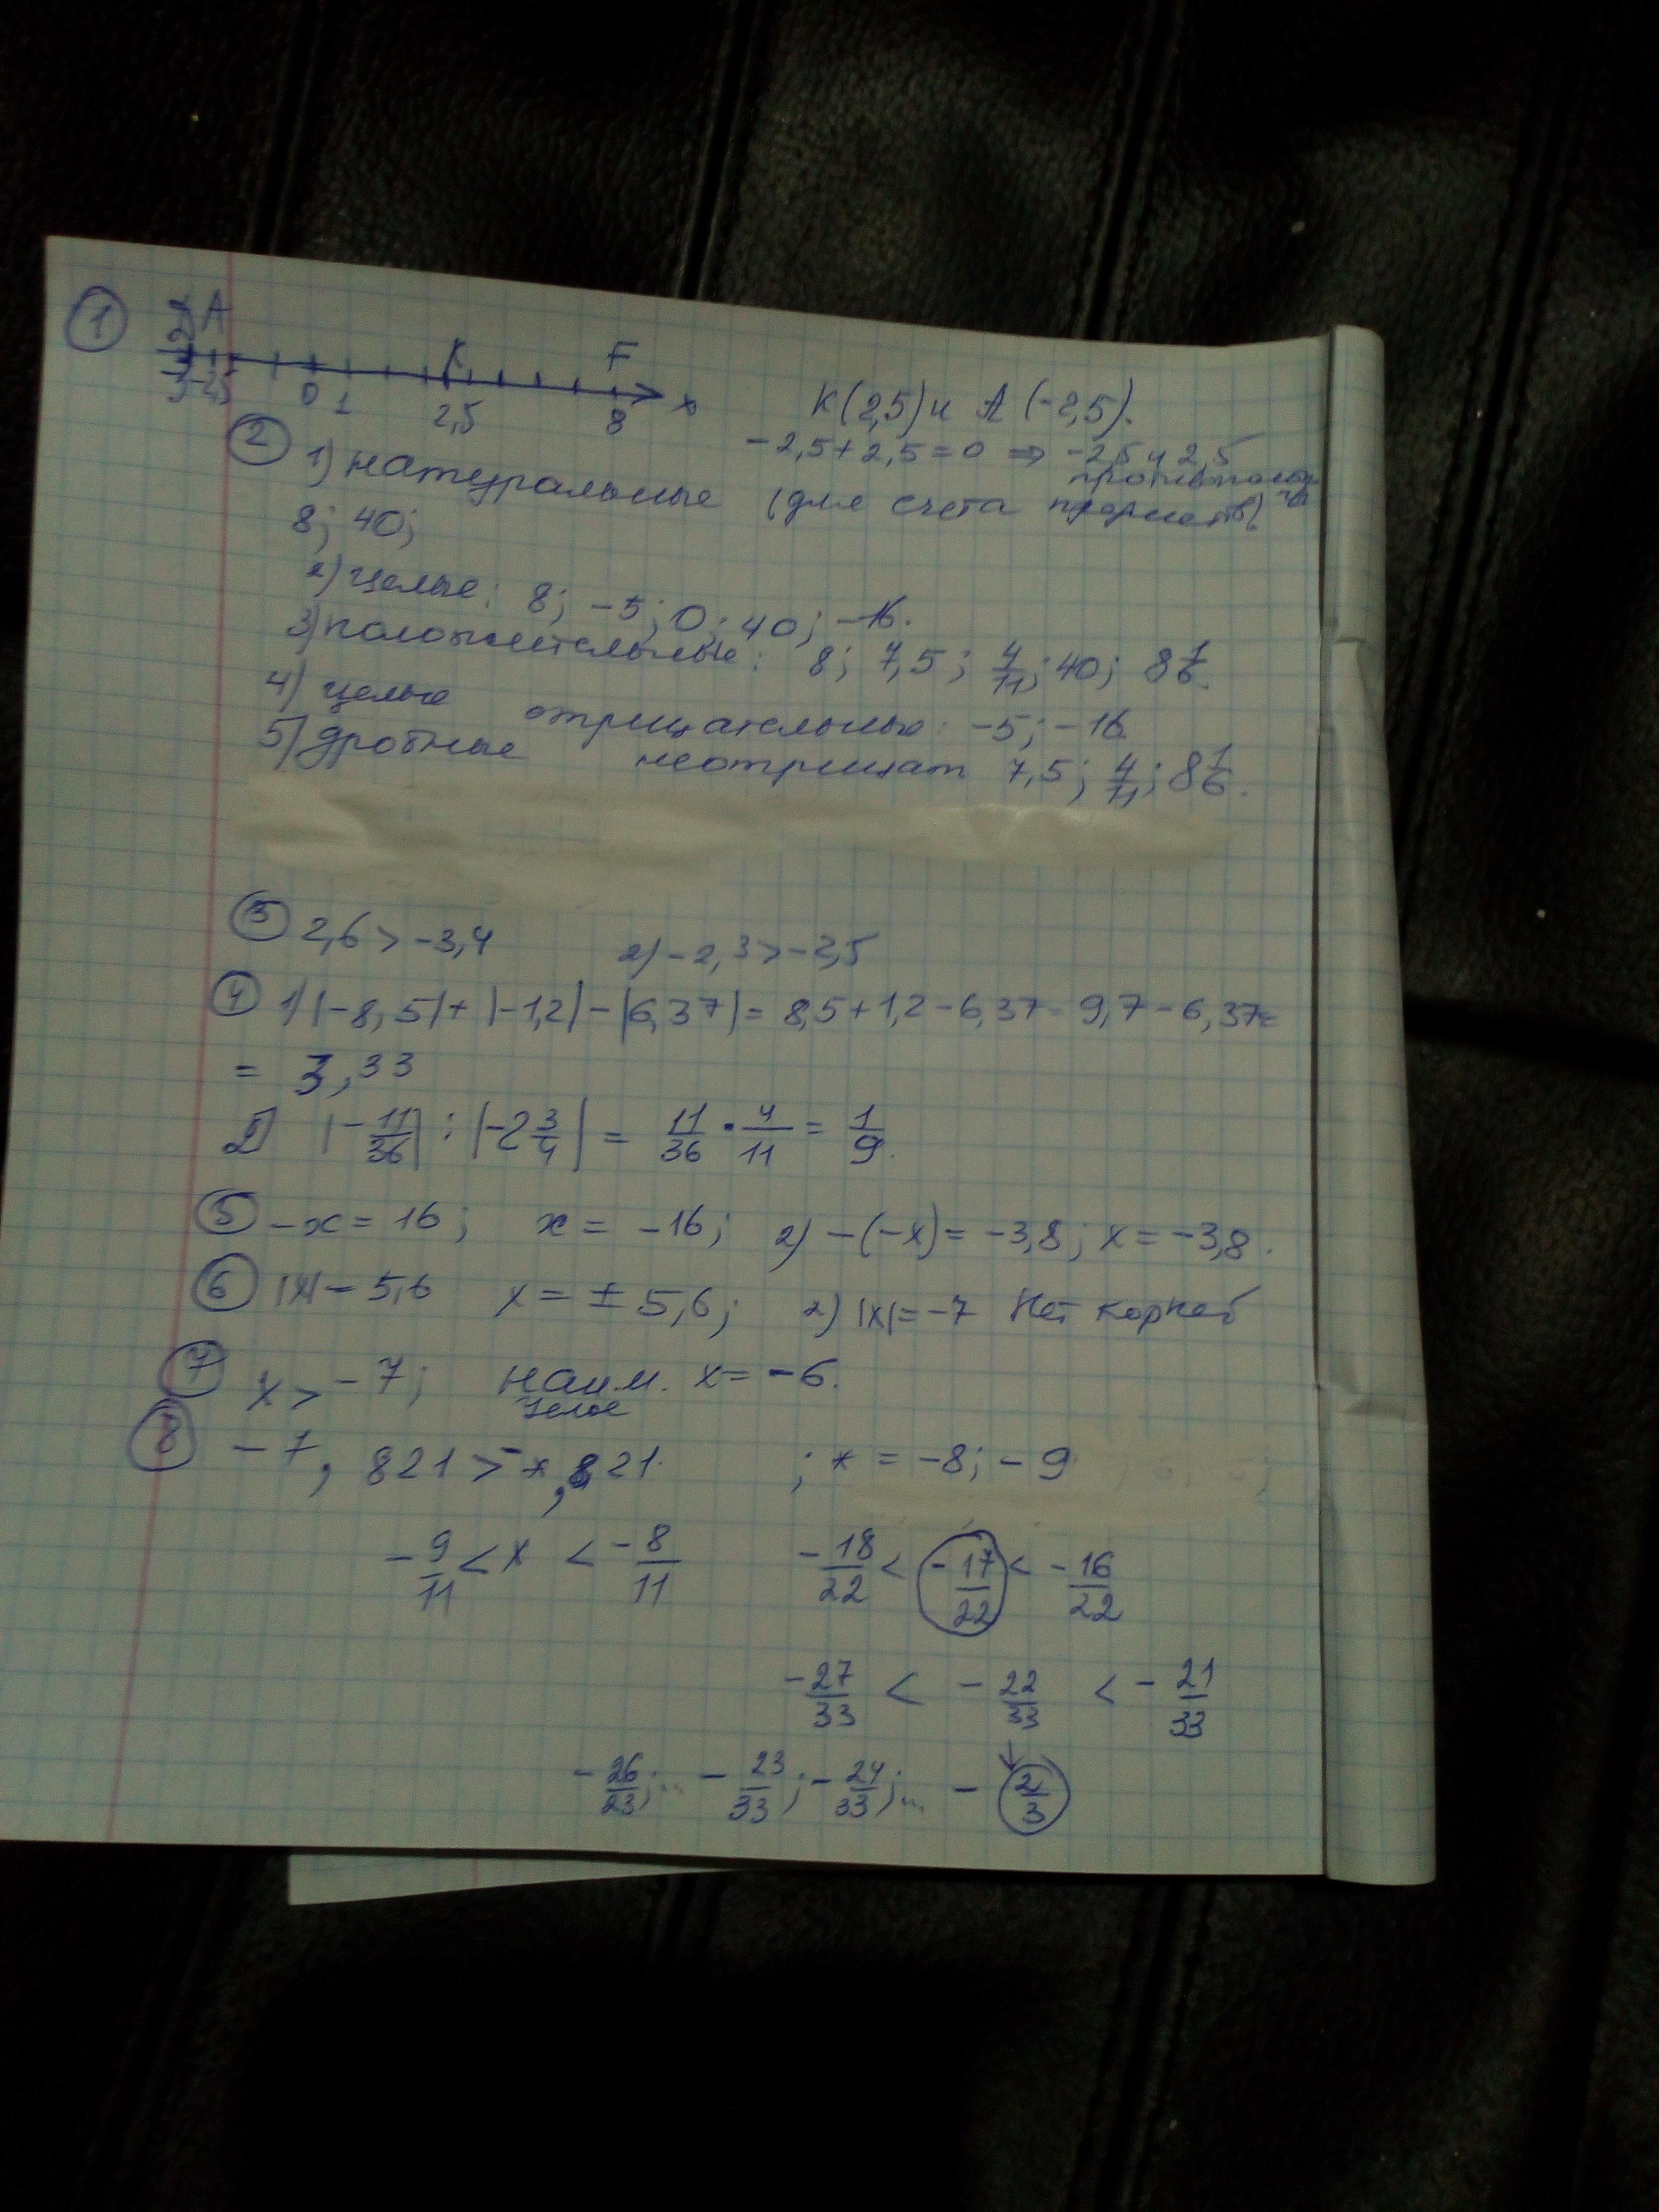 1 A K F
-2,5 0 1 2,5 8 x
K(2,5) и A(-2,5).
-2,5+2,5=0 ⇒ -2,5 и 2,5
2 1) натуральные (для счета предметов)
8; 40;
2) целые: 8; -5; 0; 40; -16.
3) положительные: 8; 7,5; 4/11; 40; 8 1/6.
4) целые отрицательные: -5; -16
5) дробные неотрицат 7,5; 4/11; 8 1/6.
3 2,6 > -3,4 2) -2,3 > -2,5
4 1) |-8,5| + |-1,2| - |6,37| = 8,5 + 1,2 - 6,37 = 9,7 - 6,37 =
= 3,33
2) |-11/36| : |-2 3/4| = 11/36 · 4/11 = 1/9.
5 -x = 16; x = -16; 2) -(-x) = -3,8; x = -3,8.
6 |x| = 5,6 x = ± 5,6; 2) |x| = -7 Нет корней
7 x > -7; наим. x = -6.
целое
8 -7,821 > -*,821 ; * = -8; -9
-9/11 < x < -8/11 -18/22 < -17/22 < -16/22
-27/33 < -22/33 < -21/33
-26/23; ... -23/33; -24/33; ... -2/3